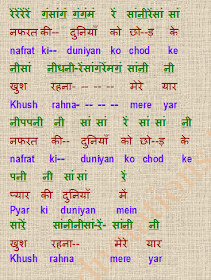 रेंरेंरेंरें गंसांगं गंगंमं रें सांनीरेंसां सां
नफरत की-- दुनियाँ को छो--ड़ के
nafrat ki-- duniyan ko chod ke
नीसां नीधनी-रेंसांगंरेंमंगं सांनी नी
खुश रहना- -- -- -- मेरे यार
Khush rahna- -- -- -- mere yar
नीपपनी नी सां सां रें सां सां नी
नफरत की-- दुनियाँ को छो--ड़ के
nafrat ki-- duniyan ko chod ke
पनी नी सां सां रें
प्यार की दुनियाँ में
Pyar ki duniyan mein
सारें सांनीनीसां-रें- सांनी नी
खुश रहना-- मेरे यार
Khush rahna mere yar